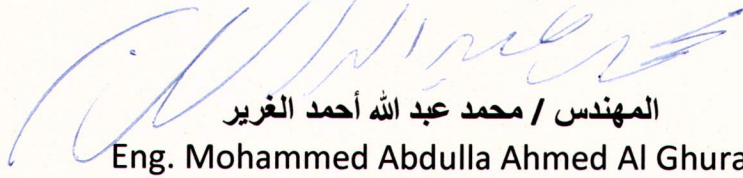 المهندس / محمد عبد الله أحمد الغرير
Eng. Mohammed Abdulla Ahmed Al Ghura